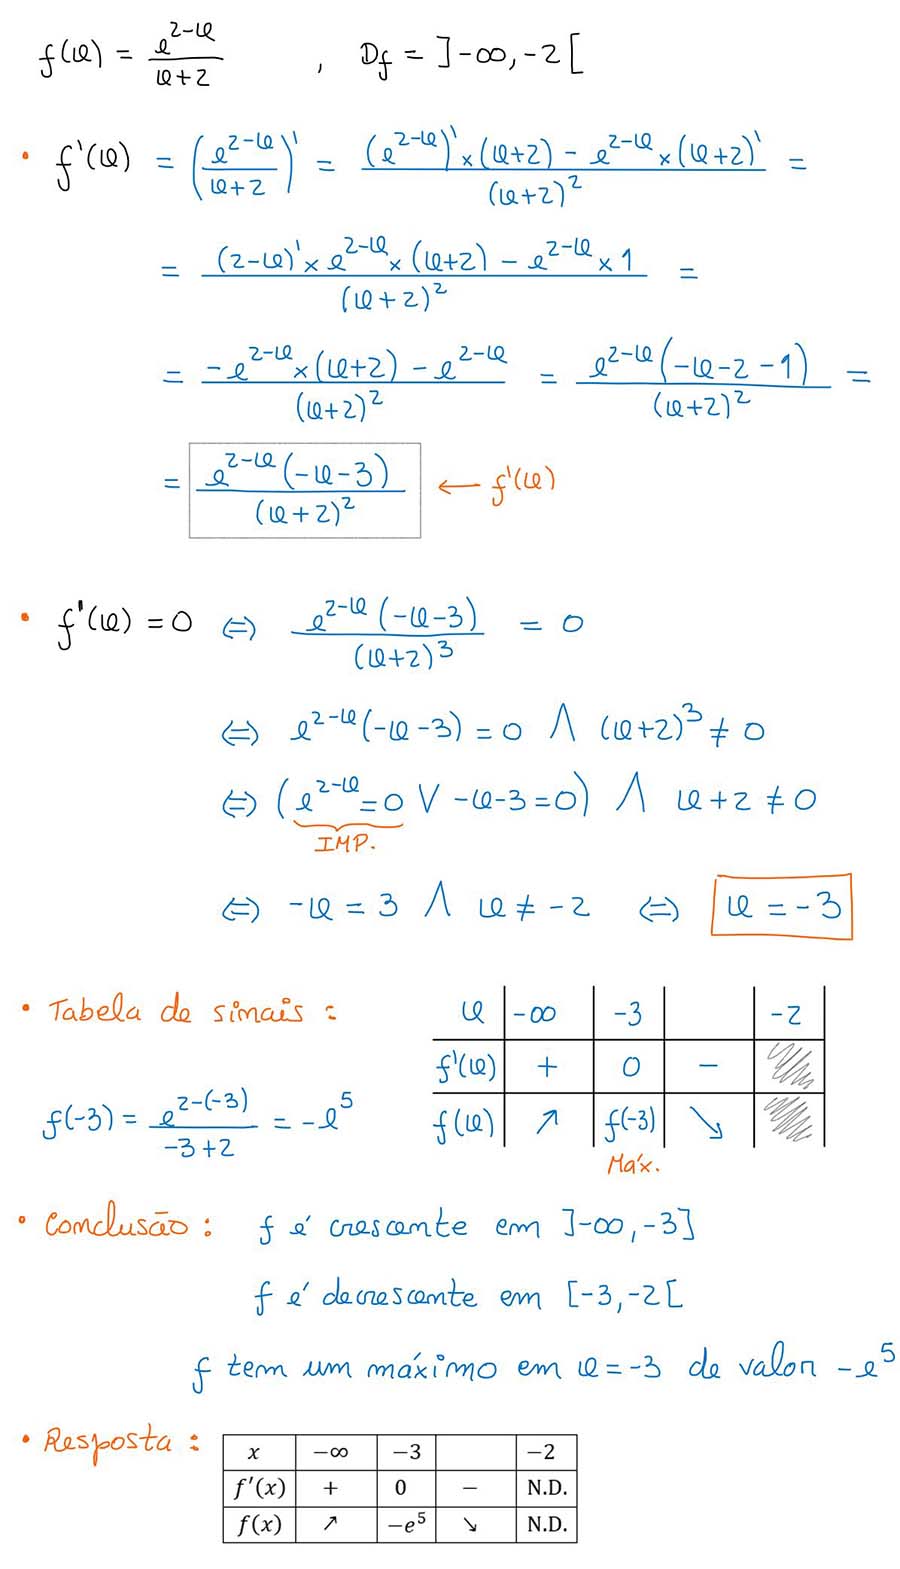 f(x) = e^(2-x)/(x+2) , Df = ]-∞,-2[
• f'(x) = (e^(2-x)/(x+2))' = ((e^(2-x))' × (x+2) - e^(2-x) × (x+2)')/(x+2)² =
= ((2-x)' × e^(2-x) × (x+2) - e^(2-x) × 1)/(x+2)² =
= (-e^(2-x) × (x+2) - e^(2-x))/(x+2)² = e^(2-x)(-x-2-1)/(x+2)² =
= e^(2-x)(-x-3)/(x+2)² ← f'(x)
• f'(x) = 0 ⇔ e^(2-x)(-x-3)/(x+2)³ = 0
⇔ e^(2-x)(-x-3) = 0 ∧ (x+2)³ ≠ 0
⇔ (e^(2-x) = 0 ∨ -x-3=0) ∧ x+2 ≠ 0
IMP.
⇔ -x = 3 ∧ x ≠ -2 ⇔ x = -3
• Tabela de sinais :
x -∞ -3 -2
f'(x) + 0 -
f(x) ↗ f(-3) ↘
Máx.
f(-3) = e^(2-(-3))/(-3+2) = -e⁵
• Conclusão : f é crescente em ]-∞,-3]
f é decrescente em [-3,-2[
f tem um máximo em x=-3 de valor -e⁵
• Resposta :
x −∞ −3 −2
f′(x) + 0 − N.D.
f(x) ↗ −e⁵ ↘ N.D.